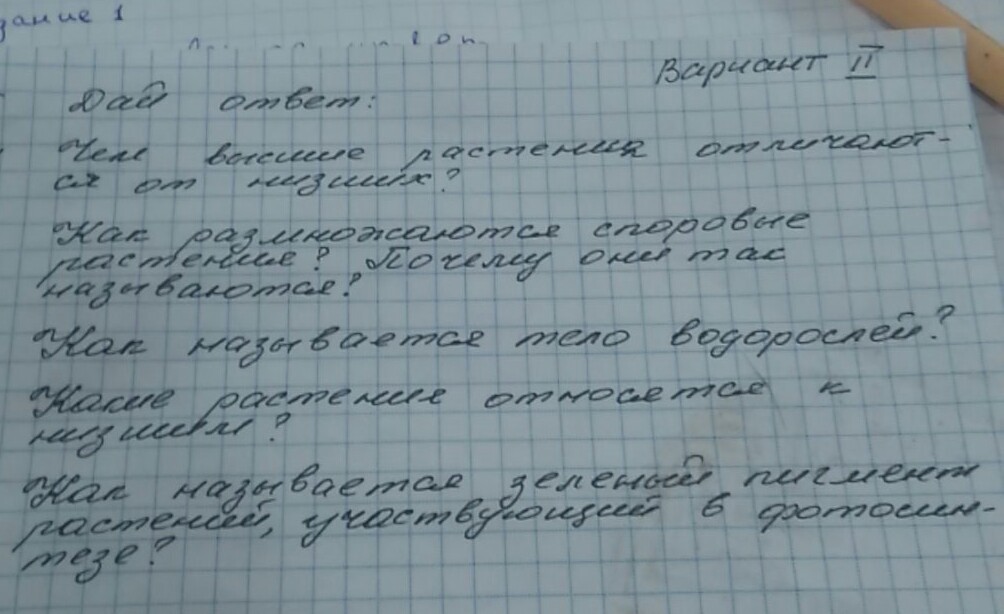 зание 1
Вариант II
Дай ответ:
Чем высшие растения отличают-
ся от низших?
Как размножаются споровые
растения? Почему они так
называются?
Как называется тело водорослей?
Какие растения относятся к
низшим?
Как называется зеленый пигмент
растений, участвующий в фотосин-
тезе?